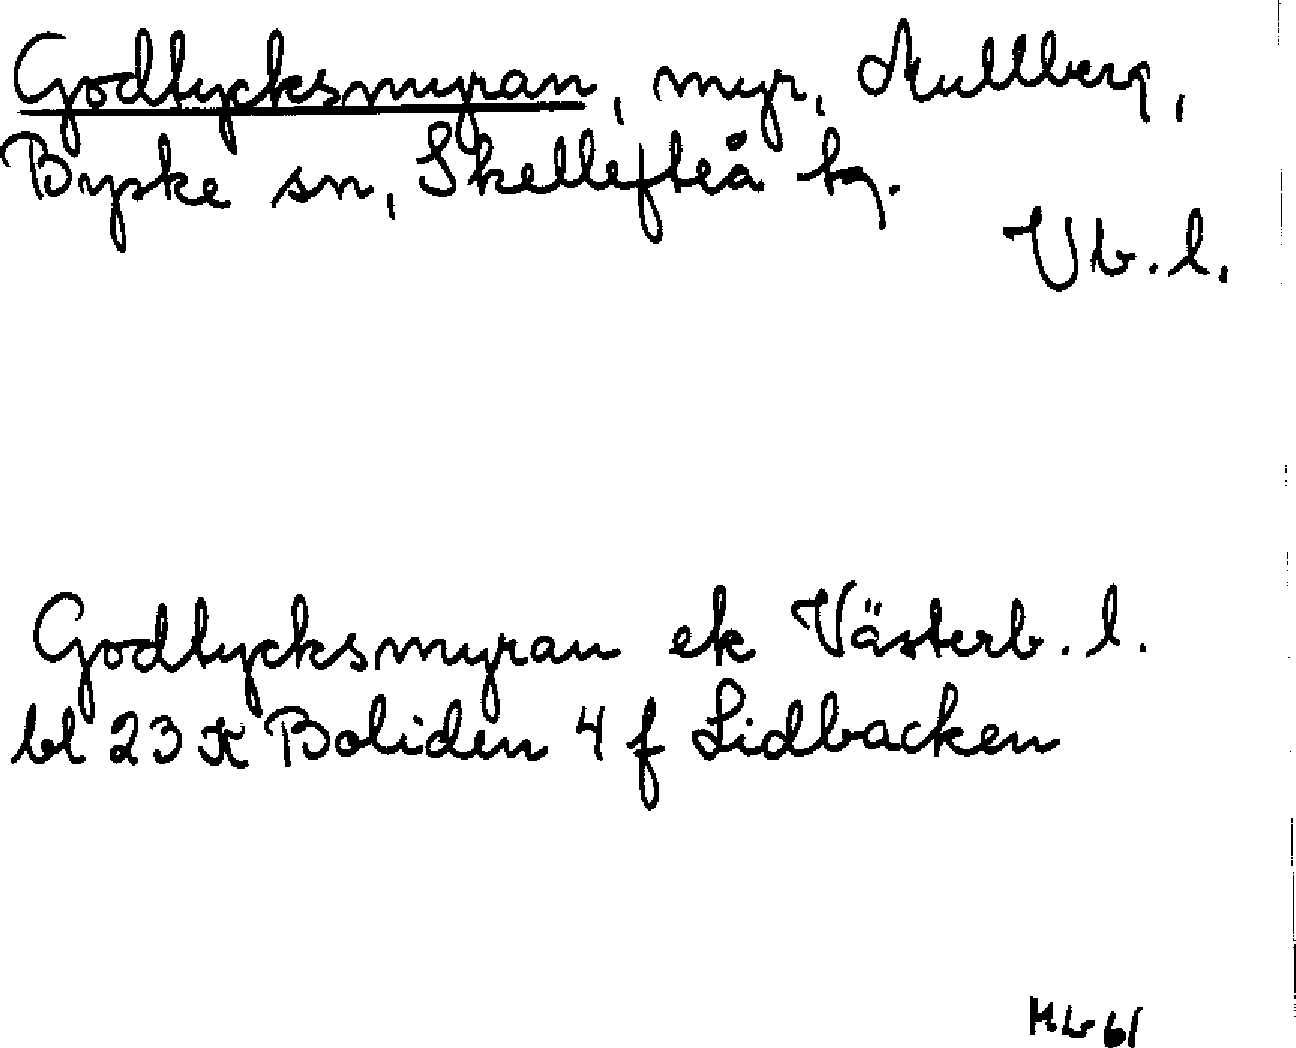 Godtycksmyran, myr, Mullberg,
Byske sn, Skellefteå tg.
Vb. l.
Godtycksmyran ek Västerb. l.
bl 23 K Boliden 4 f Lidbacken